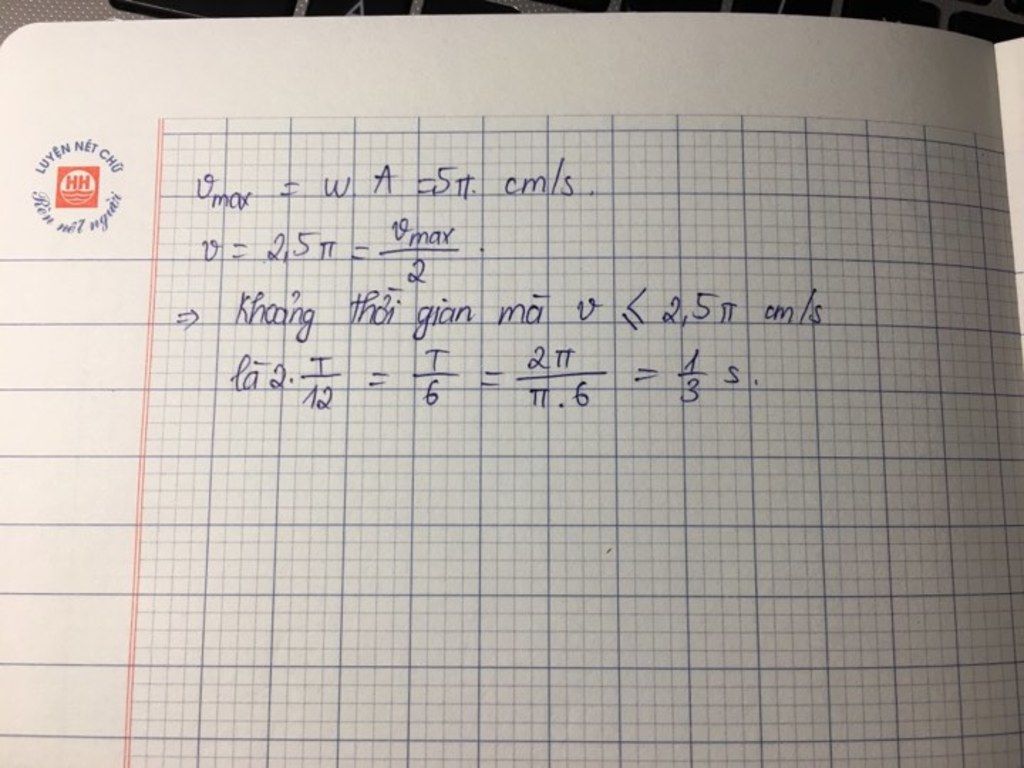 LUYỆN NÉT CHỮ
HH
Rèn nết người
v_max = ω A = 5π. cm/s.
v = 2,5π = v_max/2.
⇒ Khoảng thời gian mà v ≤ 2,5π cm/s
là 2. T/12 = T/6 = 2π/π.6 = 1/3 s.